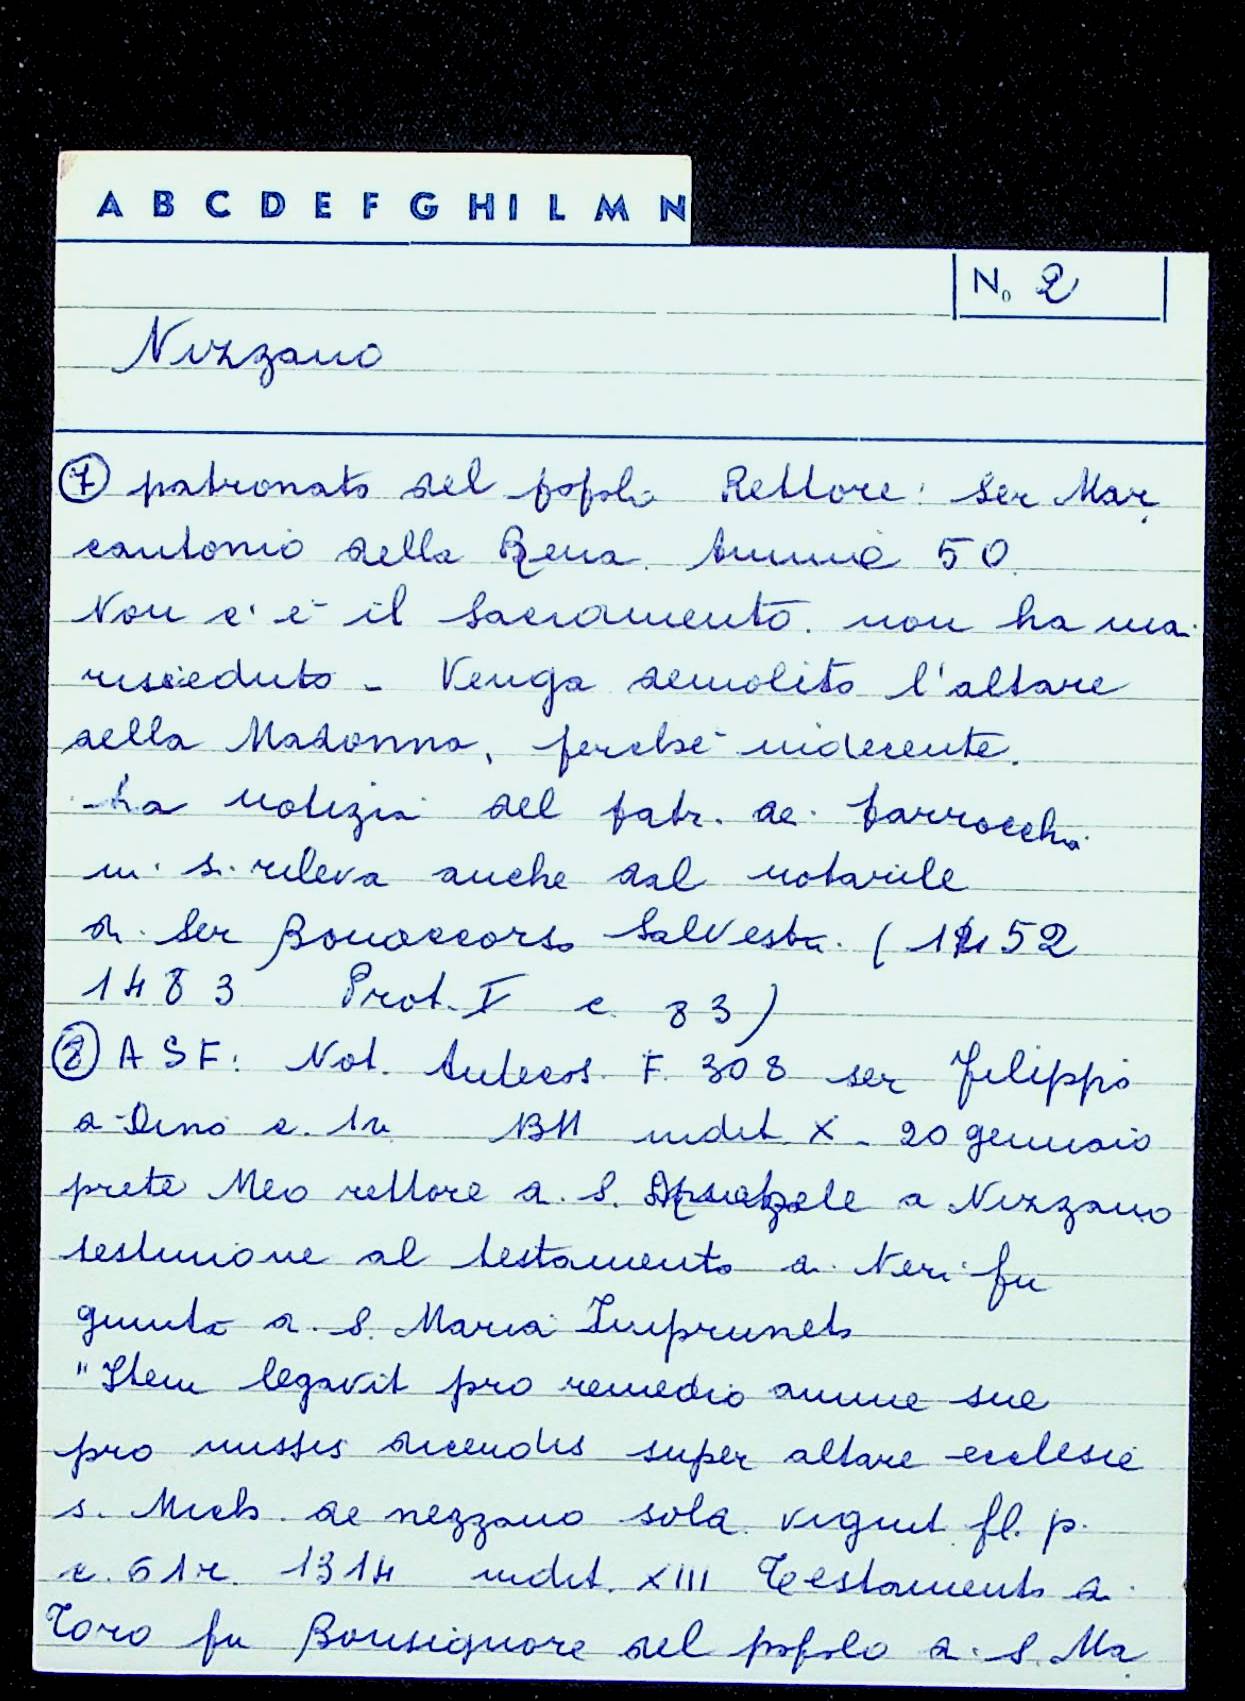 A B C D E F G H I L M N
No 2
Nizzano
7 patronato del popolo Rettore: Ser Mar
cantonio della Rena. Anime 50.
Non c'è il Sacramento. non ha mai
risieduto - Venga demolito l'altare
della Madonna, perché indecente.
La notizia del patr. dei parrocchia
ni si rileva anche dal notarile
di Ser Bonaccorso Salvestri (1452
1483 Prot. I c. 83)
8 ASF: Not. Antecos. F. 308 ser Filippo
di Dino c. 1v 1311 indit. X - 20 gennaio
prete Meo rettore di S. a Nizzano
testimone al testamento di Neri fu
giunta di S. Maria Impruneta
"Item legavit pro remedio anime sue
pro missis dicendis super altare ecclesie
s. Mich. de nezzano sold. vigint. fl. p.
c. 61r. 1314 indit. XIII Testamento di
Toro fu Bonsignore del popolo di S. Ma